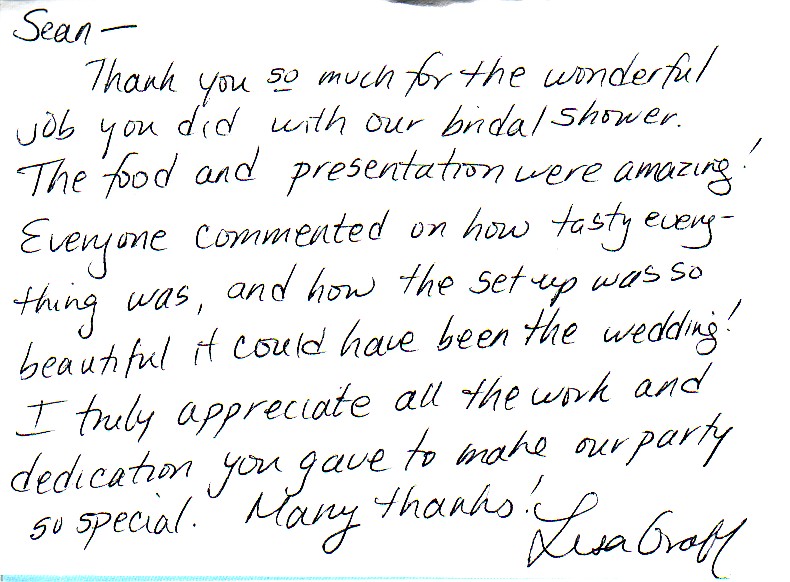 Sean —
Thank you so much for the wonderful
job you did with our bridal shower.
The food and presentation were amazing!
Everyone commented on how tasty every-
thing was, and how the set up was so
beautiful it could have been the wedding!
I truly appreciate all the work and
dedication you gave to make our party
so special. Many thanks!
Lisa